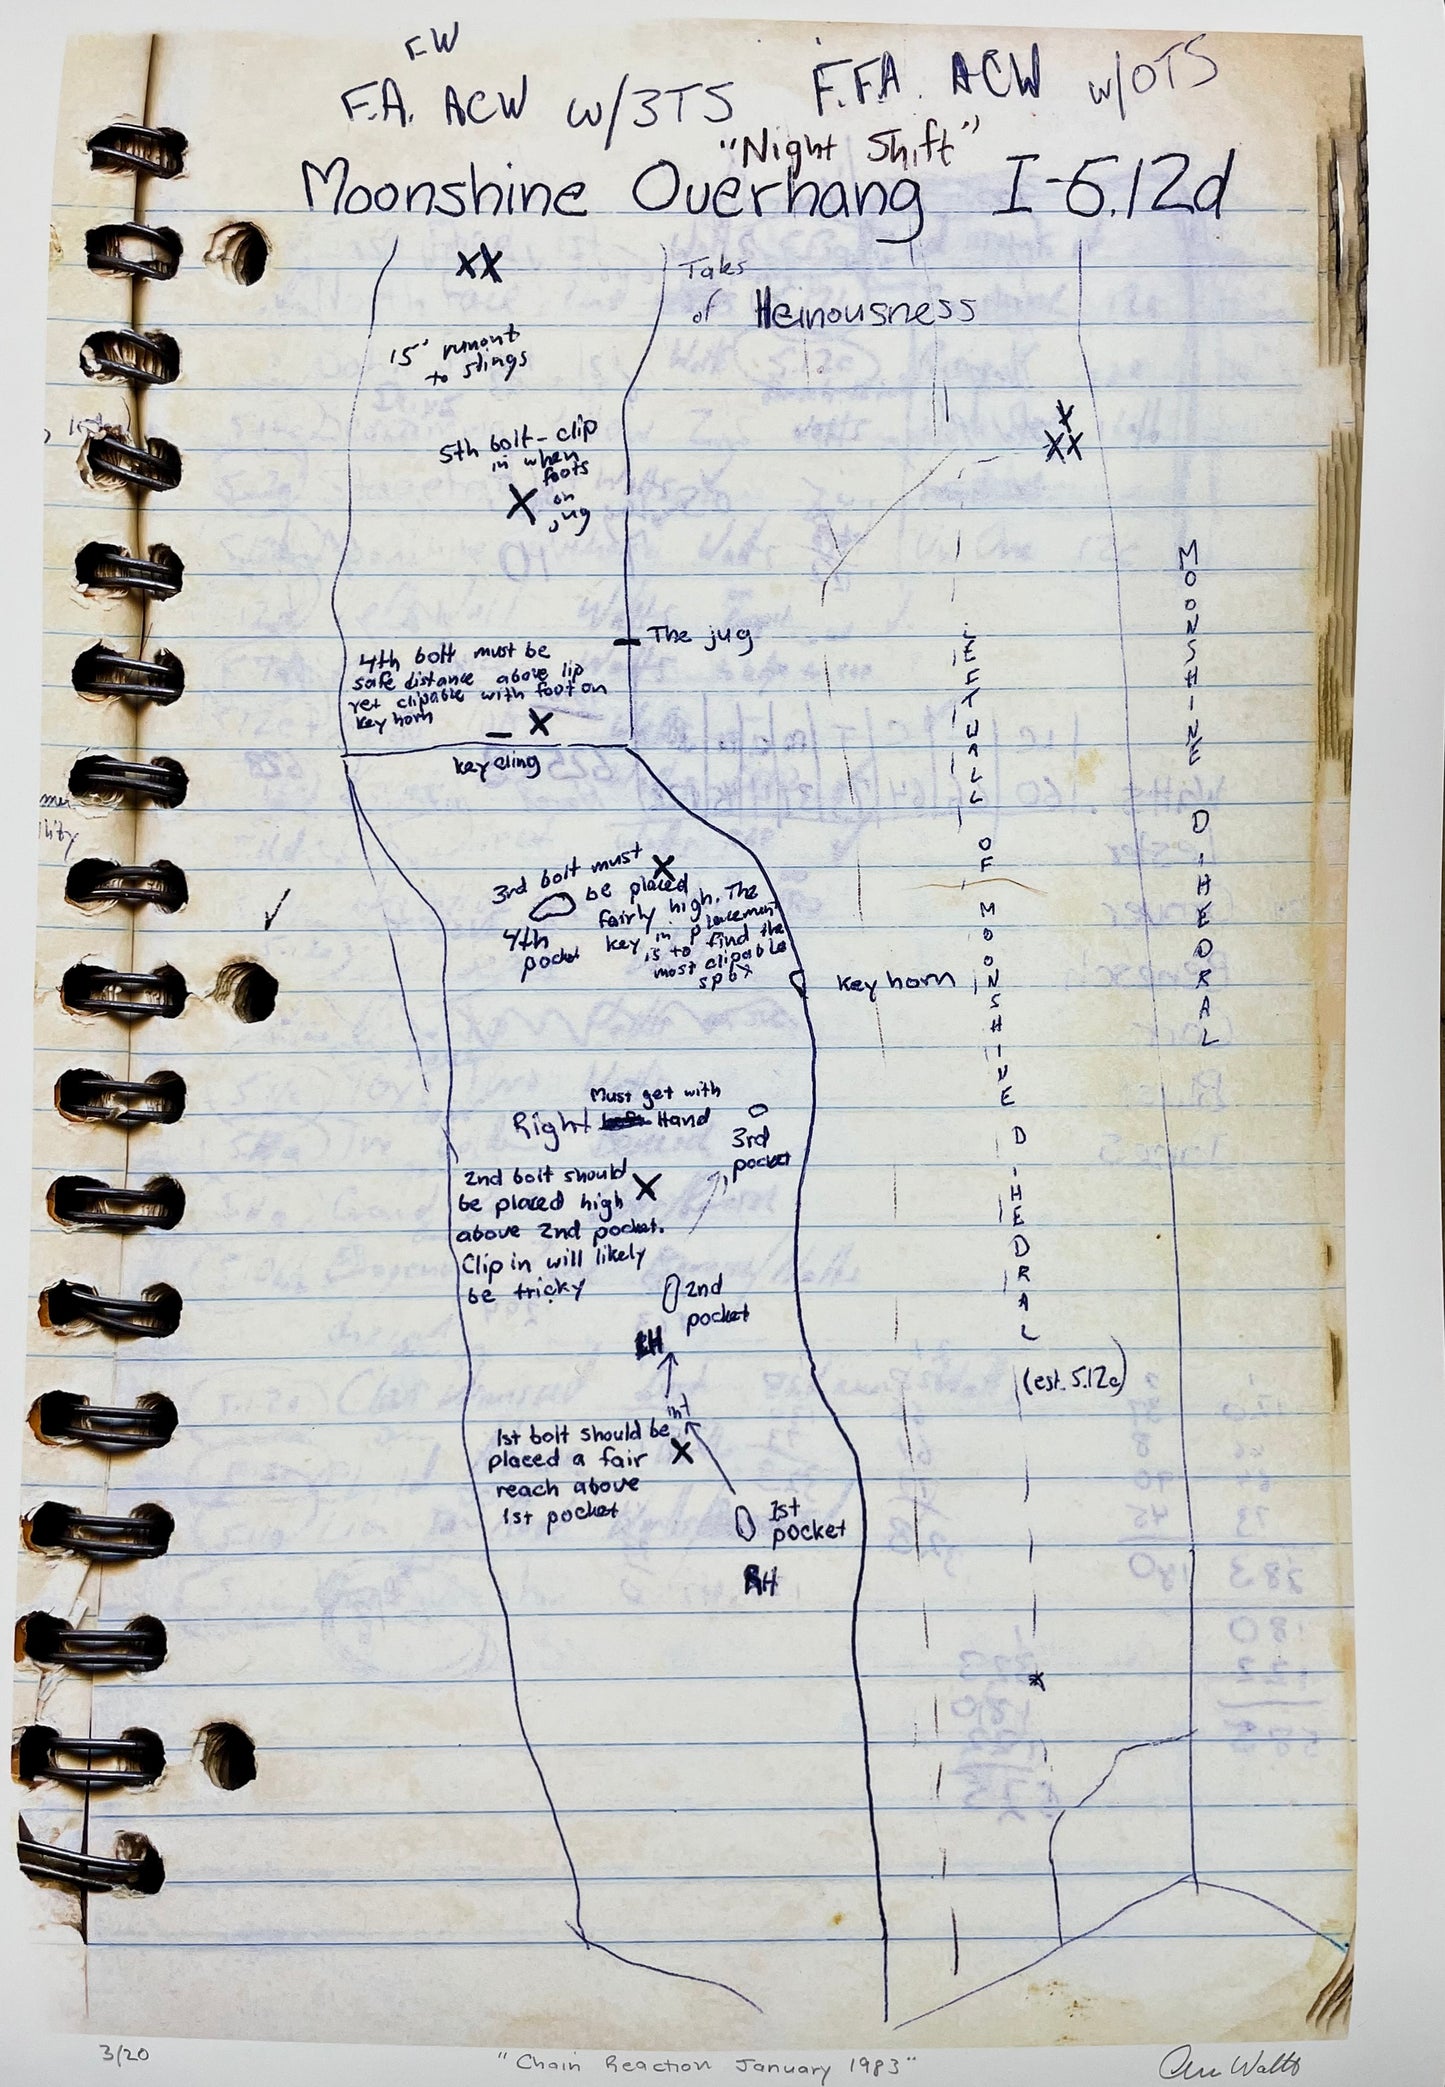 FW
F.A. ACW w/3TS F.F.A. ACW w/OTS
"Night Shift"
Moonshine Overhang I-5.12d
XX
Tales
of Heinousness
15' runout
to slings
5th bolt - clip
in when
foots
on
jug
X
X
XX
The jug
4th bolt must be
safe distance above lip
yet clipable with foot on
key horn
X
key cling
3rd bolt must
be placed
fairly high. The
key in placement
is to find the
most clipable
spot
X
4th
pocket
key horn
Must get with
Right Hand
3rd
pocket
2nd bolt should
be placed high
above 2nd pocket.
Clip in will likely
be tricky
X
2nd
pocket
LH
int
1st bolt should be
placed a fair
reach above
1st pocket
X
1st
pocket
RH
LEFT WALL OF MOONSHINE DIHEDRAL
(est. 5.12c)
MOONSHINE DIHEDRAL
3/20
"Chain Reaction January 1983"
Alan Watts